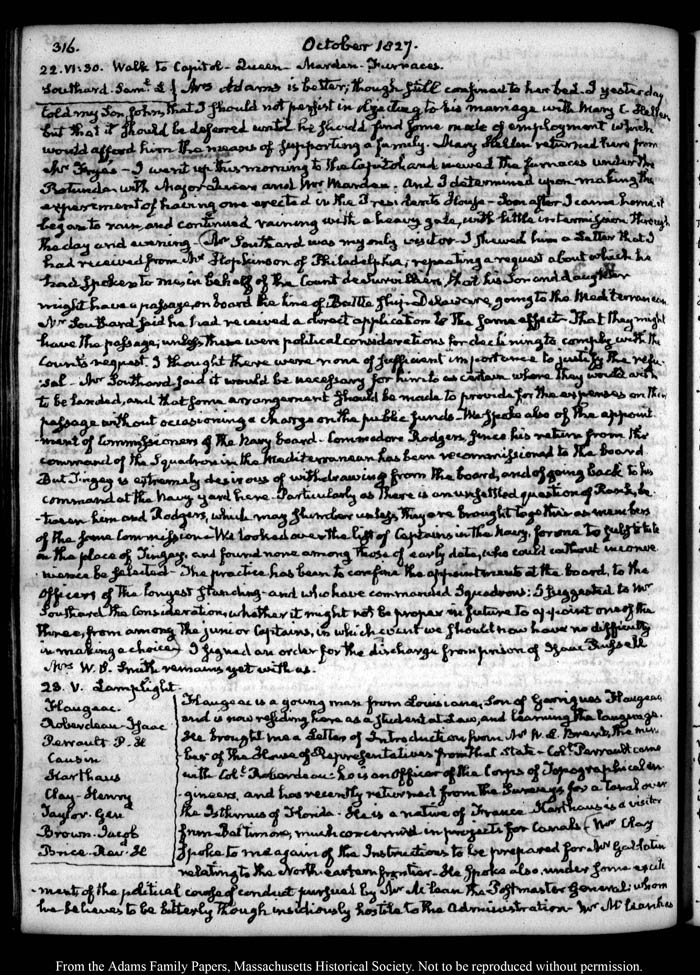 316. October 1827.
22. VI:30. Walk to Capitol - Queen - Marden - Furnaces.
Southard. Saml. L Mrs Adams is better, though still confined to her bed. I yesterday
told my Son John, that I should not persist in objecting to his marriage with Mary C. Hellen
but that it should be deferred until he should find some mode of employment which
would afford him the means of supporting a family. Mary Hellen returned here from
Mr Frye's - I went up this morning to the Capitol, and viewed the furnaces under the
Rotunda with Major and Mr Marden. And I determined upon making the
experiment of having one erected in the President's House - Soon after I came home it
began to rain, and continued raining with a heavy gale, with little intermission through
the day and evening - Mr Southard was my only visitor - I shewed him a Letter that I
had received from Mr Hopkinson of Philadelphia; repeating a request about which he
had spoken to me in behalf of the Count de Survilliers, that his Son and daughter
might have a passage, on board the line of Battle Ship Delaware, going to the Mediterranean
Mr Southard said he had received a direct application to the same effect - That they might
have the passage; unless there were political considerations for declining to comply with the
Count's request. I thought there were none of sufficient importance to justify the refu-
-sal - Mr Southard said it would be necessary for him to ascertain where they would wish
to be landed, and that some arrangement should be made to provide for the expenses on their
passage without occasioning a charge on the public funds. We spoke also of the appoint-
-ment of Commissioners of the Navy board - Commodore Rodgers, since his return from the
command of the Squadron in the Mediterranean has been recommissioned to the board
But Tingey is extremely desirous of withdrawing from the board, and of going back to his
command at the Navy yard here - Particularly as there is an unsettled question of Rank, be-
-tween him and Rodgers, which may slumber unless they are brought together as members
of the same Commission - We looked over the list of Captains in the Navy, for one to substitute
in the place of Tingey, and found none among those of early date, who could without inconve-
nience be selected - The practice has been to confine the appointments at the board, to the
Officers of the longest standing - and who have commanded Squadrons: I suggested to Mr
Southard the consideration, whether it might not be proper in future to appoint one of the
three, from among the junior Captains, in which event we should now have no difficulty
in making a choice. I signed an order for the discharge from prison of Isaac Russell
Mrs W. S. Smith remains yet with us.
23. V. Lamplight.
Flaugeac Flaugeac is a young man from Louisiana, Son of Garrigues Flaugeac
Roberdeau - Isaac and is now residing here as a student at Law, and learning the language.
Perrault P. H He brought me a Letter of Introduction from Mr W. L. Brent, the mem-
Causin ber of the House of Representatives from that State - Colt. Perrault came
Karthaus with Colt. Roberdeau - he is an officer of the Corps of Topographical en-
Clay - Henry gineers, and has recently returned from the Surveys for a Canal over
Taylor - Geo the Isthmus of Florida - He is a native of France Karthaus is a visitor
Brown - Jacob from Baltimore, much concerned in projects for Canals - Mr Clay
Brice - Rev. Spoke to me again of the Instructions to be prepared for Mr Gallatin
relating to the North-eastern frontier. He spoke also, under some excite
-ment of the political course of conduct pursued by Mr McLean the Postmaster General; whom
he believes to be utterly though insidiously hostile to the Administration - Mr McLean has
From the Adams Family Papers, Massachusetts Historical Society. Not to be reproduced without permission.